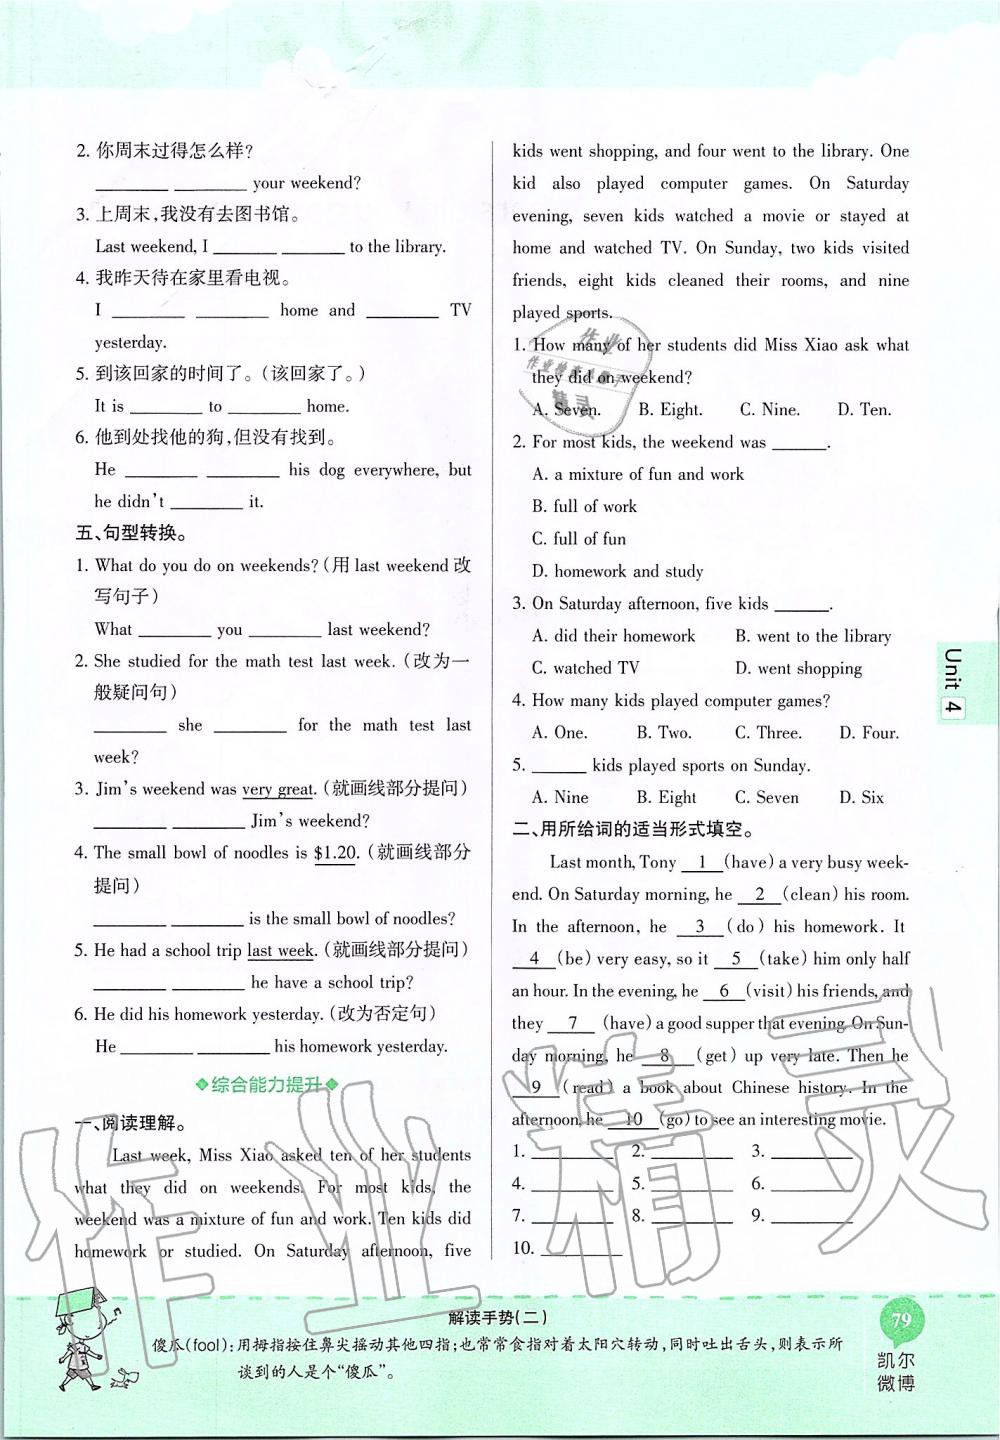 2. 你周末过得怎么样?
________ ________ your weekend?
3. 上周末,我没有去图书馆。
Last weekend, I _______ _______ to the library.
4. 我昨天待在家里看电视。
I ________ ________ home and ________ TV
yesterday.
5. 到该回家的时间了。(该回家了。)
It is ________ to ________ home.
6. 他到处找他的狗,但没有找到。
He ________ ________ his dog everywhere, but
he didn't ________ it.
五、句型转换。
1. What do you do on weekends? (用 last weekend 改
写句子)
What ________ you ________ last weekend?
2. She studied for the math test last week. (改为一
般疑问句)
________ she ________ for the math test last
week?
3. Jim's weekend was very great. (就画线部分提问)
________ ________ Jim's weekend?
4. The small bowl of noodles is $1.20. (就画线部分
提问)
________ ________ is the small bowl of noodles?
5. He had a school trip last week. (就画线部分提问)
________ ________ he have a school trip?
6. He did his homework yesterday. (改为否定句)
He ________ ________ his homework yesterday.
综合能力提升
一、阅读理解。
Last week, Miss Xiao asked ten of her students
what they did on weekends. For most kids, the
weekend was a mixture of fun and work. Ten kids did
homework or studied. On Saturday afternoon, five
kids went shopping, and four went to the library. One
kid also played computer games. On Saturday
evening, seven kids watched a movie or stayed at
home and watched TV. On Sunday, two kids visited
friends, eight kids cleaned their rooms, and nine
played sports.
1. How many of her students did Miss Xiao ask what
they did on weekend?
A. Seven. B. Eight. C. Nine. D. Ten.
2. For most kids, the weekend was ______.
A. a mixture of fun and work
B. full of work
C. full of fun
D. homework and study
3. On Saturday afternoon, five kids ______.
A. did their homework B. went to the library
C. watched TV D. went shopping
4. How many kids played computer games?
A. One. B. Two. C. Three. D. Four.
5. ______ kids played sports on Sunday.
A. Nine B. Eight C. Seven D. Six
二、用所给词的适当形式填空。
Last month, Tony 1 (have) a very busy week-
end. On Saturday morning, he 2 (clean) his room.
In the afternoon, he 3 (do) his homework. It
4 (be) very easy, so it 5 (take) him only half
an hour. In the evening, he 6 (visit) his friends, and
they 7 (have) a good supper that evening. On Sun-
day morning, he 8 (get) up very late. Then he
9 (read) a book about Chinese history. In the
afternoon, he 10 (go) to see an interesting movie.
1. ________ 2. ________ 3. ________
4. ________ 5. ________ 6. ________
7. ________ 8. ________ 9. ________
10. ________
Unit 4
解读手势(二)
傻瓜(fool):用拇指按住鼻尖摇动其他四指;也常常食指对着太阳穴转动,同时吐出舌头,则表示所
谈到的人是个“傻瓜”。
79
凯尔
微博
作业精灵